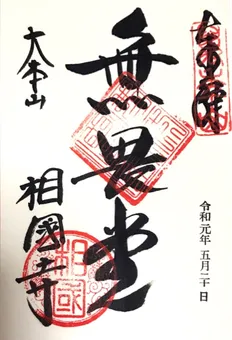 奉拝
無畏堂
大本山
相國寺
令和元年 五月二十日
相國